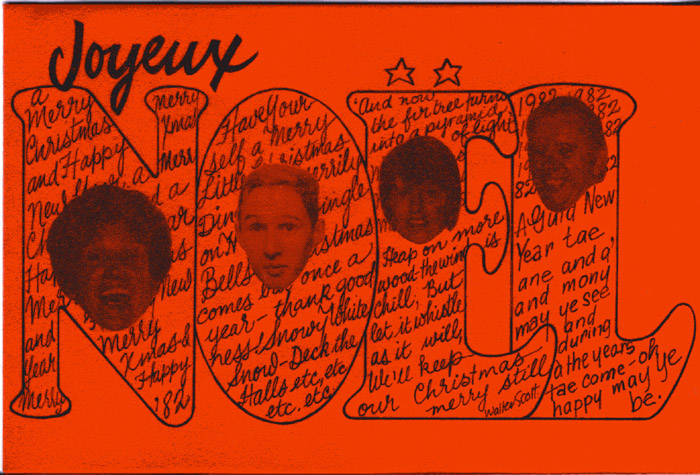 Joyeux
NOËL
a
Merry
Christmas
and Happy
New
Merry
and
Year
Merry
Merry
Xmas
Merry
New
Merry
Xmas &
Happy
'82
Have Your
self a Merry
Little Christmas
Merrily
Bells
comes but once a
year - thank good
ness! Snowy White
Snow - Deck the
Halls etc, etc,
etc. etc.
'And now
the fir tree turns
into a pyramid
of light
Heap on more
wood - the wind is
chill; But
let it whistle
as it will,
We'll keep
our Christmas
merry still
Walter Scott
1982 1982
A guid New
Year tae
ane and a'
and mony
may ye see
and
during
a' the years
tae come - oh
happy may ye
be.